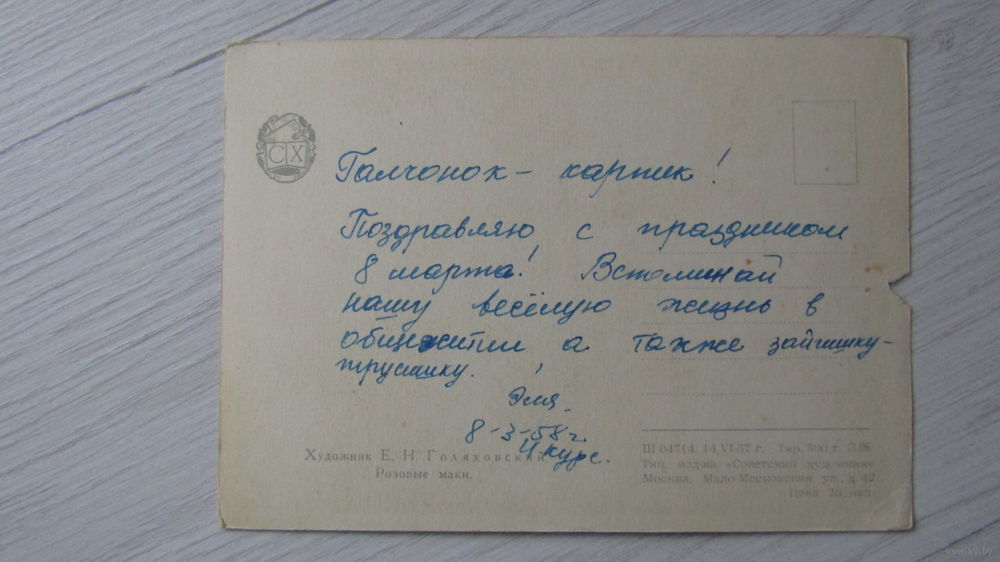 СХ
Галчонок - картек!
Поздравляю с праздником
8 марта! Вспоминай
нашу весёлую жизнь в
общежитии а также зайчишку-
трусишку.
Эля.
8-3-58 г.
4 курс.
Художник Е. Н. Голяховский
Розовые маки.
Ш 04714. 14/VI-57 г. Тир. 500 т. З.
Тип. изд-ва «Советский художник»
Москва, Мало-Московская ул., д.
Цена 20 коп.
www.ay.by